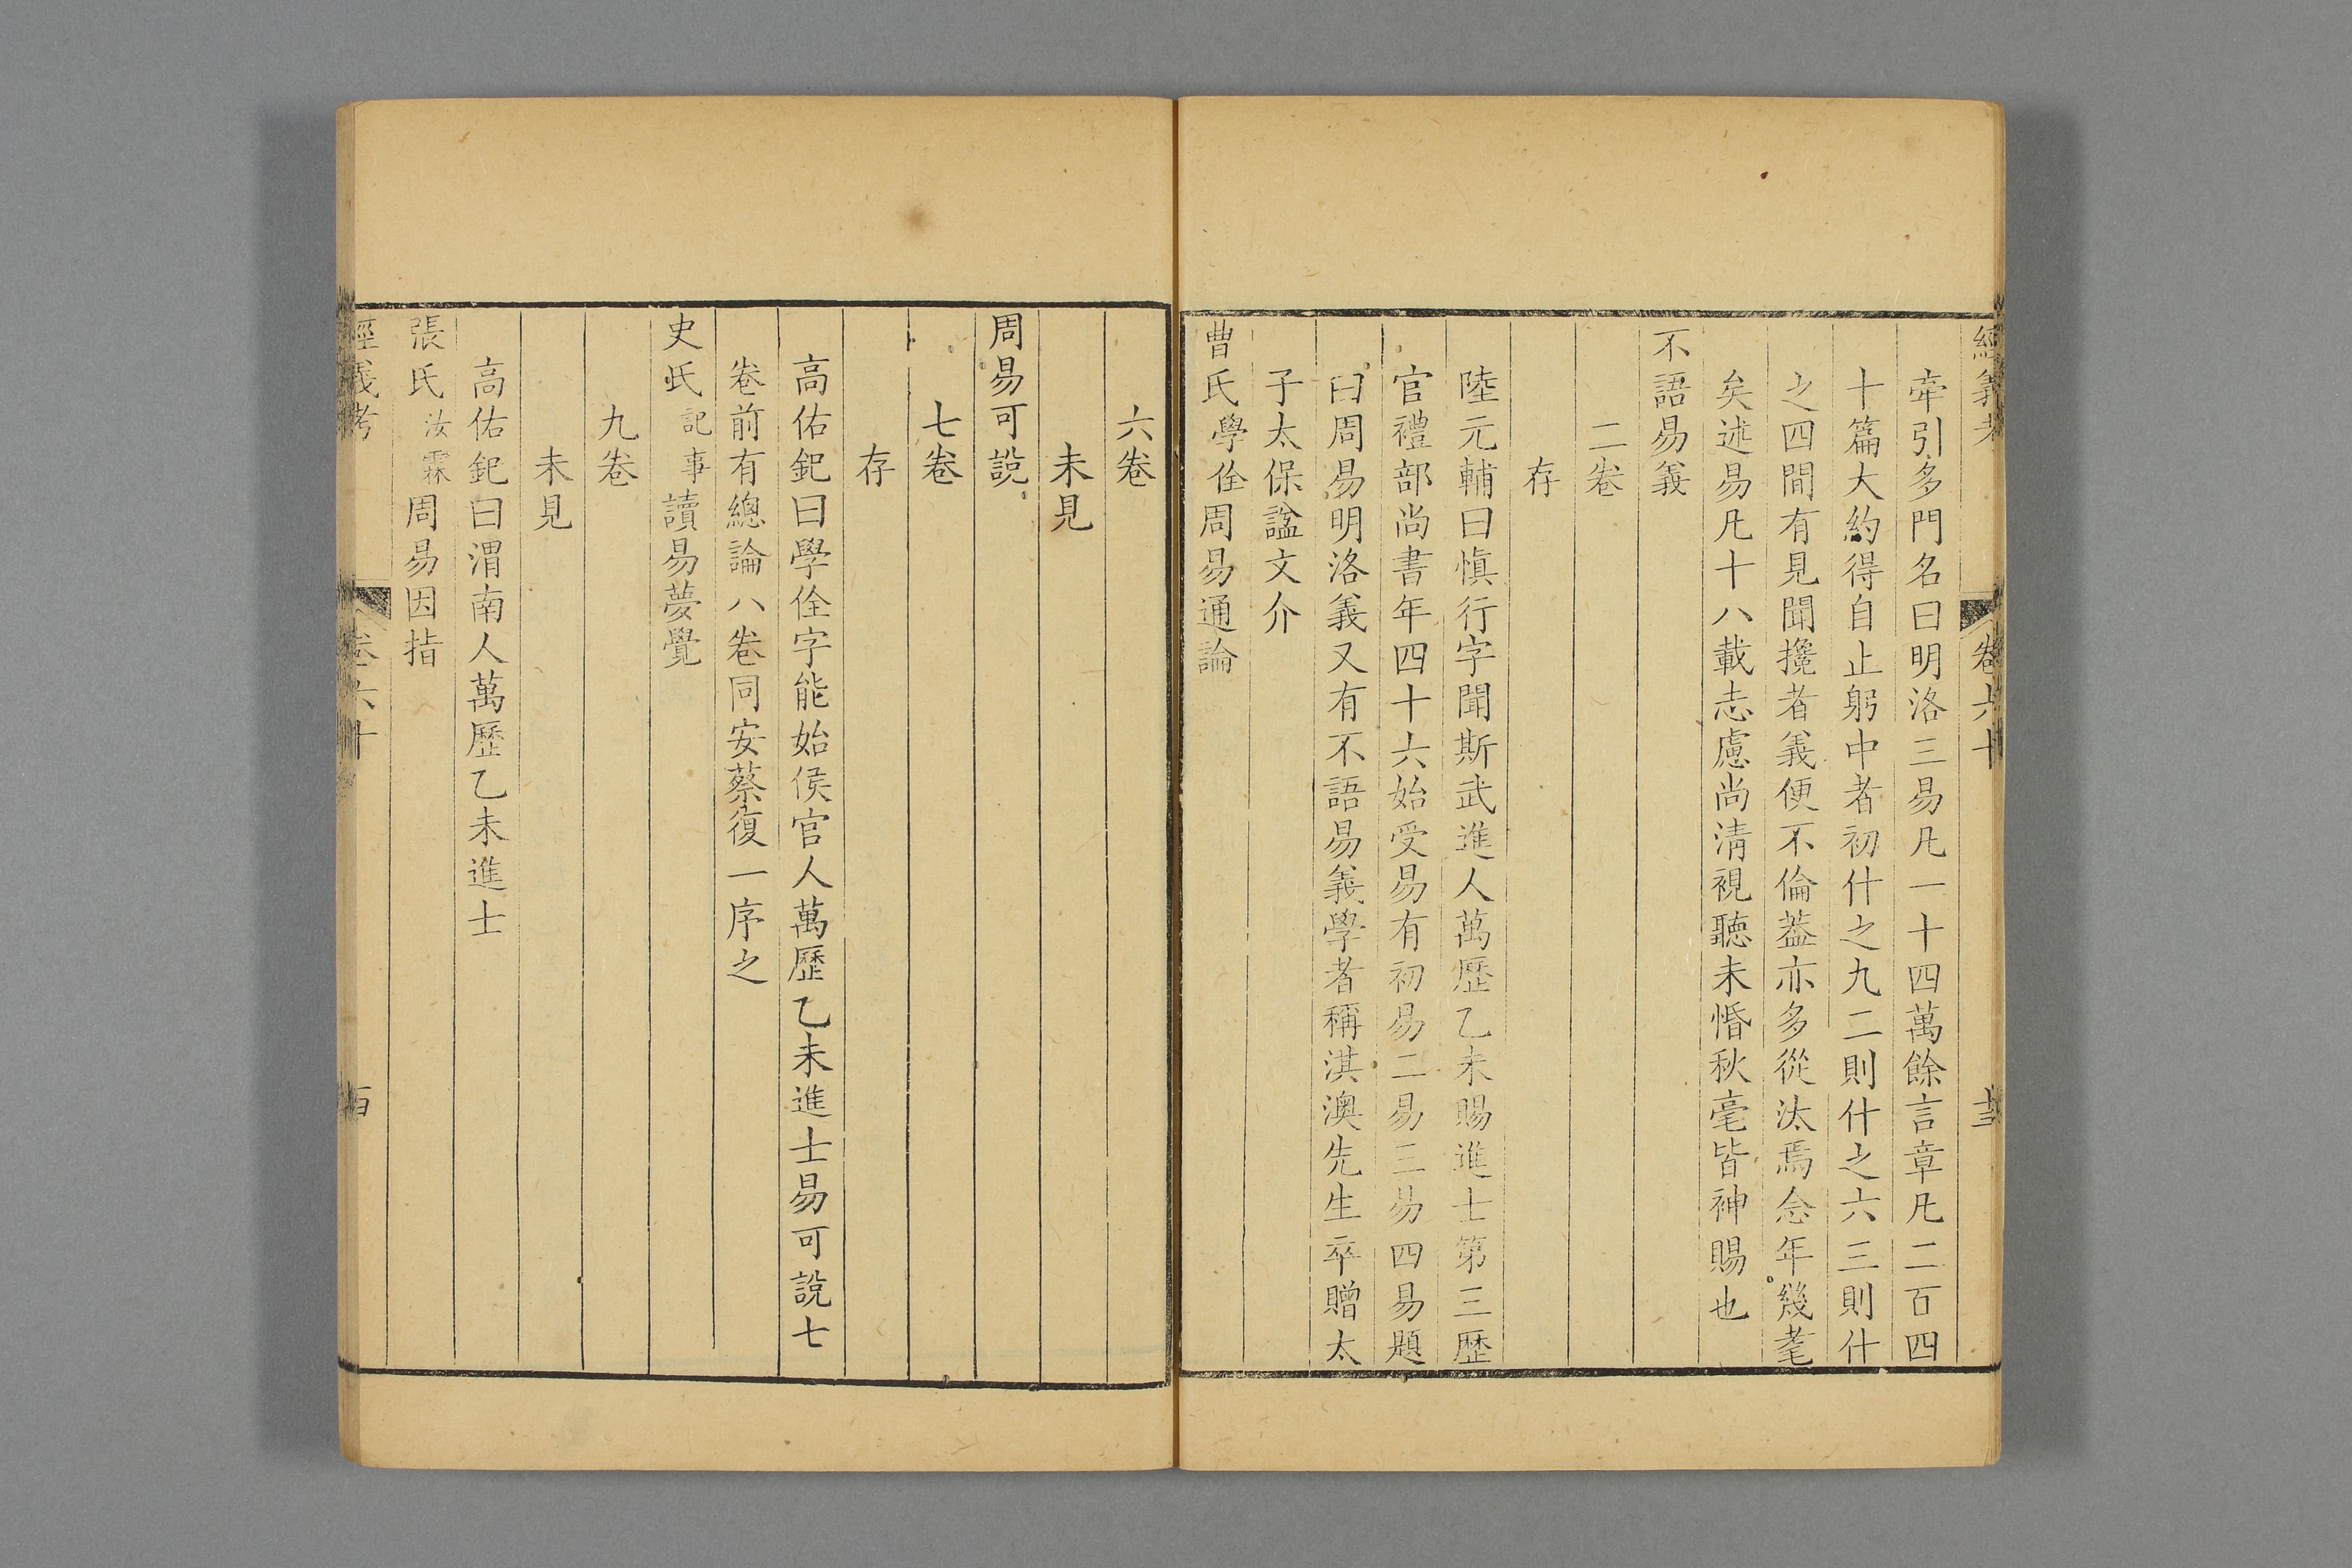 經義考 卷六十 十三
牽引多門名曰明洛三易凡一十四萬餘言章凡二百四
十篇大約得自止躬中者初什之九二則什之六三則什
之四間有見聞攙者義便不倫蓋亦多從汰焉念年幾耄
矣述易凡十八載志慮尚清視聽未惛秋毫皆神賜也
不語易義
二卷
存
陸元輔曰慎行字聞斯武進人萬歷乙未賜進士第三歷
官禮部尚書年四十六始受易有初易二易三易四易題
曰周易明洛義又有不語易義學者稱淇澳先生卒贈太
子太保諡文介
曹氏學佺周易通論
六卷
未見
周易可說
七卷
存
高佑釲曰學佺字能始侯官人萬歷乙未進士易可說七
卷前有總論八卷同安蔡復一序之
史氏記事讀易夢覺
九卷
未見
高佑釲曰渭南人萬歷乙未進士
張氏汝霖周易因指
經義考 卷六十